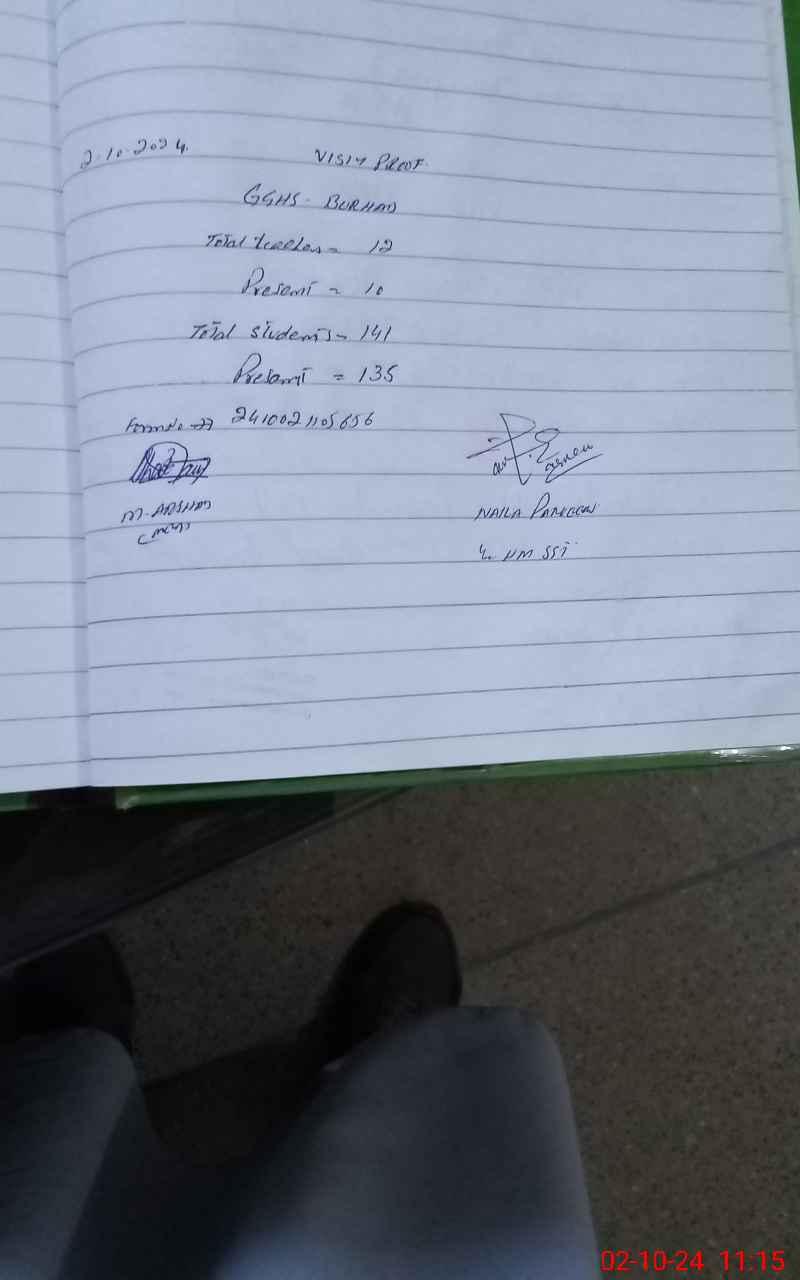 2.10.2024. VISIT PROOF.
GGHS - BURHAN
Total teachers = 12
Present = 10
Total students = 141
Present = 135
2410021105656
M. ARSHAD
NAILA
HM SST
02-10-24 11:15